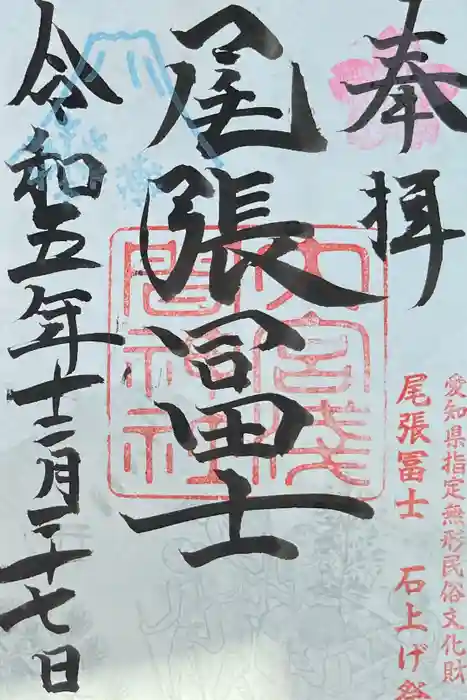 奉拝
愛知県指定無形民俗文化財
尾張冨士 石上げ祭
尾張冨士
大宮淺
間神社
令和五年十二月二十七日